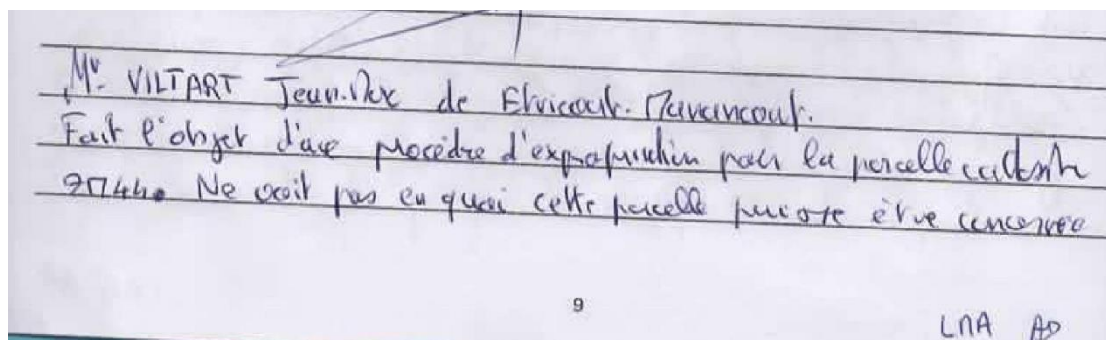 Mr. VILTART Jean.Luc de Etricourt. Manancourt.
Fait l'objet d'une procédure d'expropriation pour la parcelle cadastrée
ZM44. Ne voit pas en quoi cette parcelle puisse être concernée
9
LMA AD